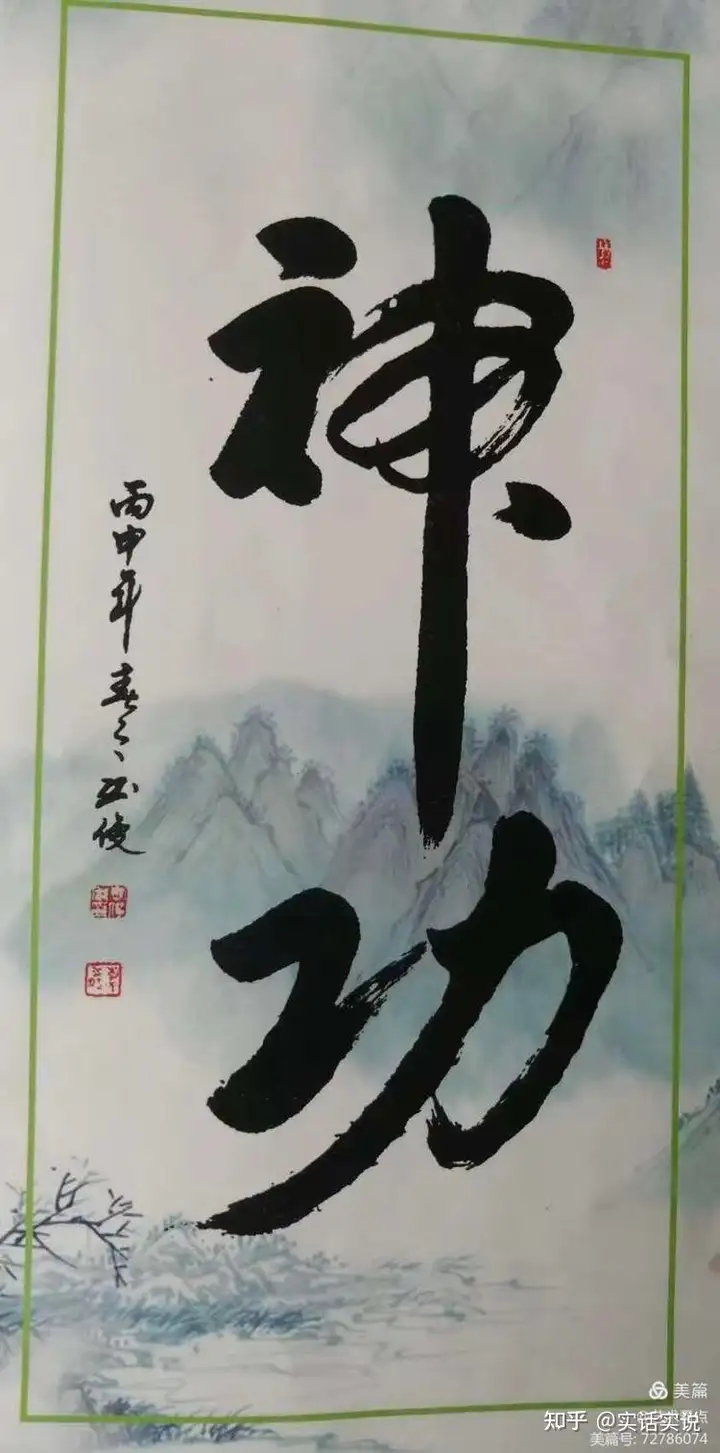 神功
丙申年春
美篇
知乎 @实话实说
美篇号: 72786074